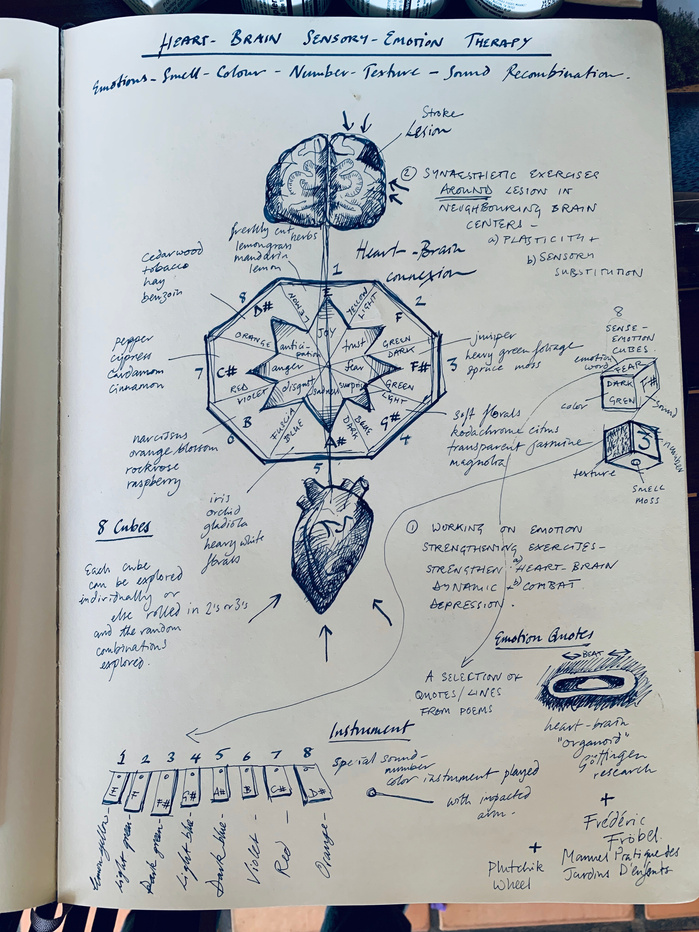 HEART- BRAIN SENSORY-EMOTION THERAPY
Emotions-Smell-Colour-Number-Texture-Sound Recombination.
Stroke
Lesion
② SYNAESTHETIC EXERCISES
AROUND LESION IN
NEIGHBOURING BRAIN
CENTERS-
a) PLASTICITY +
b) SENSORY
SUBSTITUTION
freshly cut herbs
lemongrass
mandarin
lemon
Heart-Brain
connexion
cedarwood
tobacco
hay
benzoin
1
E
LEMON
YELLOW
LIGHT
2
F
GREEN
DARK
3
F#
GREEN
LIGHT
4
G#
BLUE
DARK
5
A#
FUCSIA
BLUE
6
B
VIOLET
7
C#
RED
8
B#
ORANGE
JOY
trust
fear
surprise
sadness
disgust
anger
antici-
pation
pepper
cypress
cardamom
cinnamon
juniper
heavy green foliage
spruce moss
8
SENSE-
EMOTION
CUBES.
emotion
word
FEAR
DARK
GREN
F#
color
sound
3
number
texture
SMELL
MOSS
soft florals
kodachrome citrus
transparent jasmine
magnolia
narcissus
orange blossom
rockrose
raspberry
iris
orchid
gladiola
heavy white
florals
8 Cubes
Each cube
can be explored
individually or
else rolled in 2's or 3's
and the random
combinations
explored.
① WORKING ON EMOTION
STRENGTHENING EXERCITES-
STRENGTHEN a) HEART-BRAIN
DYNAMIC + b) COMBAT
DEPRESSION.
A SELECTION OF
QUOTES/LINES
FROM POEMS
Emotion Quotes
BEAT
heart-brain
"organoid"
Göttingen
research
+
Frédéric
Fröbel.
Manuel Pratique des
Jardins D'enfants
+
Plutchik
Wheel
Instrument
special sound-
number
color instrument played
with impacted
arm.
1 2 3 4 5 6 7 8
E F F# G# A# B C# D#
Lemon yellow-
Light green-
Dark green-
Light blue-
Dark blue-
Violet-
Red-
Orange-